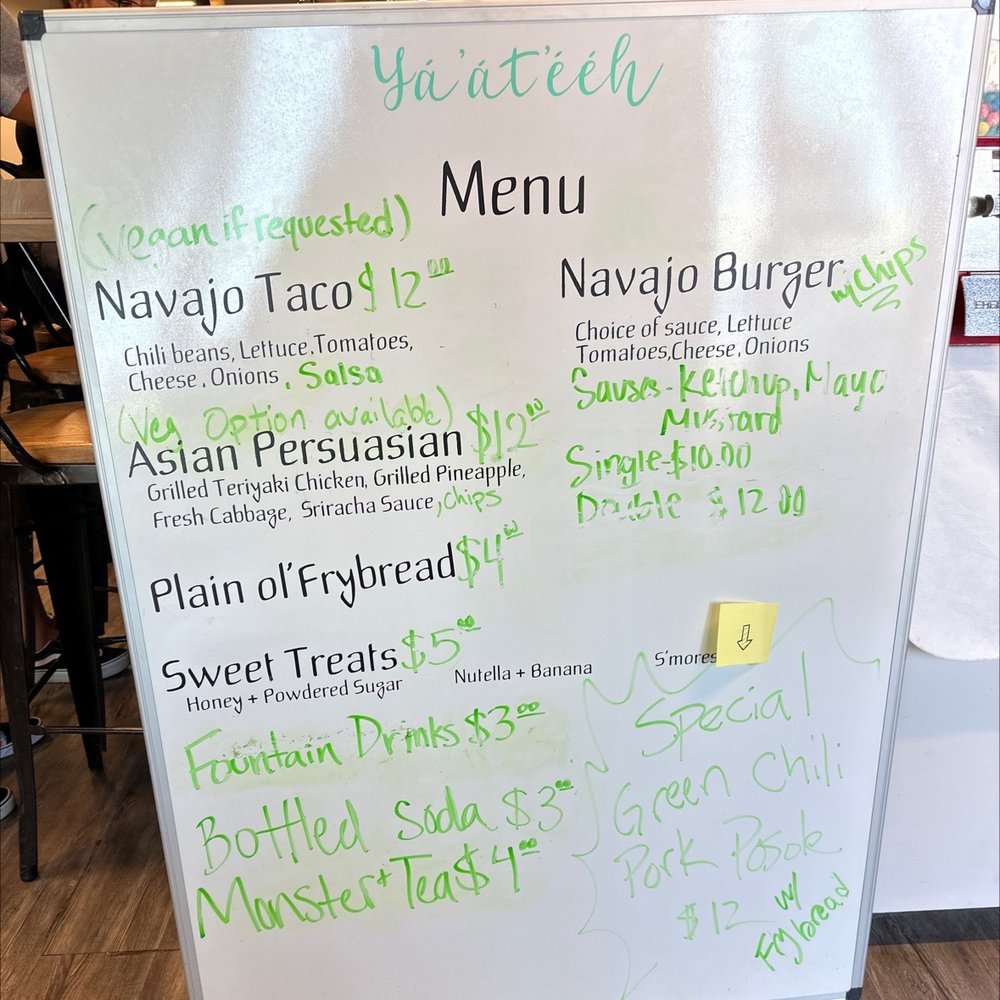 Yá'át'ééh
Menu
(Vegan if requested)
Navajo Taco $12.00
Chili beans, Lettuce, Tomatoes,
Cheese, Onions, Salsa
(Veg Option available)
Asian Persuasian $12.00
Grilled Teriyaki Chicken, Grilled Pineapple,
Fresh Cabbage, Sriracha Sauce, chips
Plain ol' Frybread $4.00
Sweet Treats $5.00
Honey + Powdered Sugar
Nutella + Banana
S'mores
Fountain Drinks $3.00
Bottled Soda $3.00
Monster + Tea $4.00
Navajo Burger w/ chips
Choice of sauce, Lettuce
Tomatoes, Cheese, Onions
Sauses - Ketchup, Mayo
Mustard
Single - $10.00
Double $12.00
Special
Green Chili
Pork Posole
$12 w/
Frybread